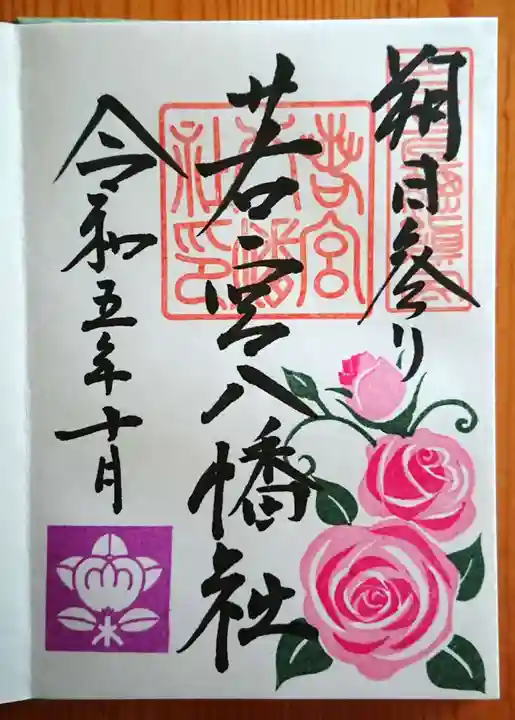 朔日参り
若宮八幡社
若宮八幡社印
令和五年十月